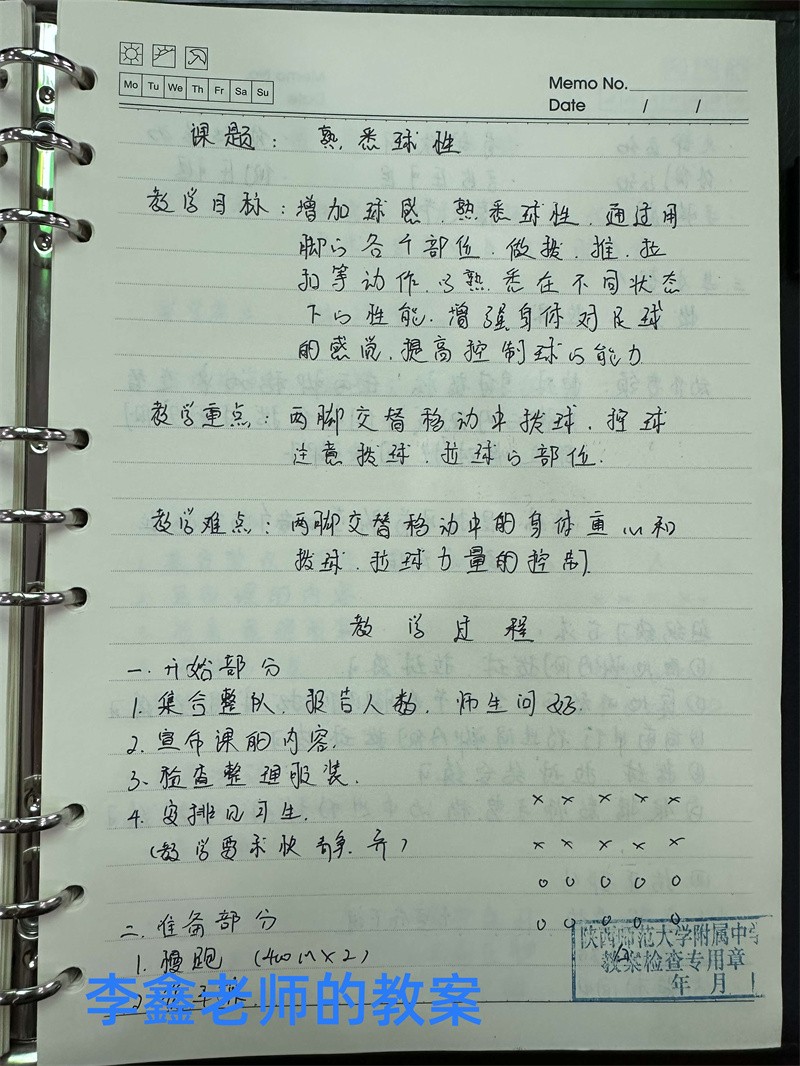 Mo Tu We Th Fr Sa Su
Memo No.
Date / /
课题: 熟悉球性
教学目标: 增加球感、熟悉球性、通过用
脚的各个部位、做拨、推、拉
扣等动作、以熟悉在不同状态
下的性能、增强身体对足球
的感觉、提高控制球的能力
教学重点: 两脚交替移动中拨球、控球
注意拨球、拉球的部位.
教学难点: 两脚交替移动中的身体重心和
拨球、拉球力量的控制
教学过程
一. 开始部分
1. 集合整队、报告人数、师生问好.
2. 宣布课的内容.
3. 检查整理服装.
4. 安排见习生.
(教学要求快静齐)
x x x x x
x x x x x
o o o o o
o o o o o
二. 准备部分
1. 慢跑 (400m×2)
2.
陕西师范大学附属中学
教案检查专用章
年 月
李鑫老师的教案